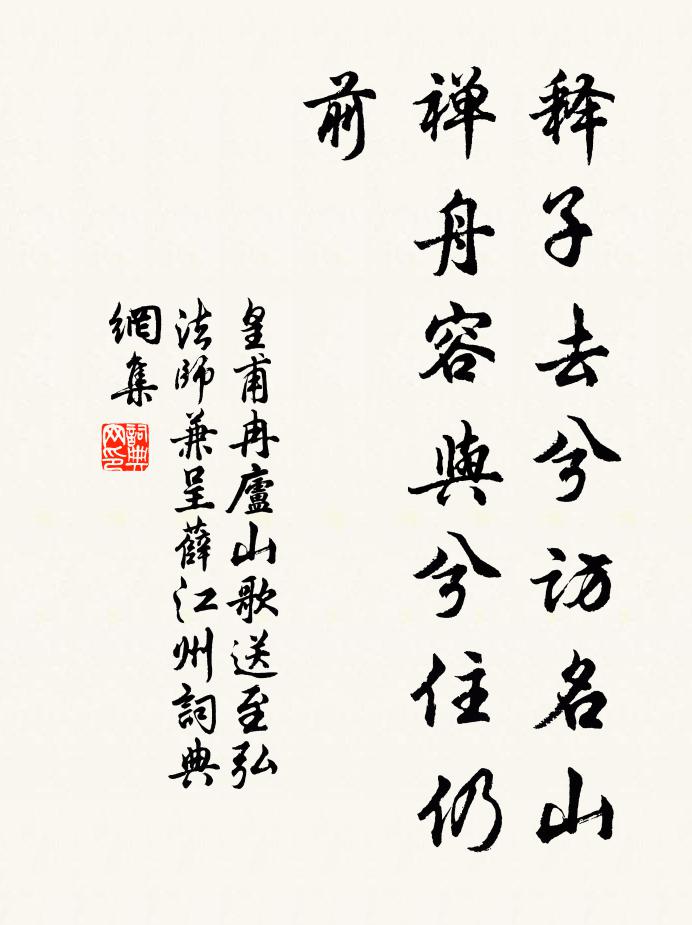 释子去兮訪名山
禅舟容與兮住仍
前
皇甫冉廬山歌送至弘
法師兼呈薛江州詞典
網集
詞典
网印